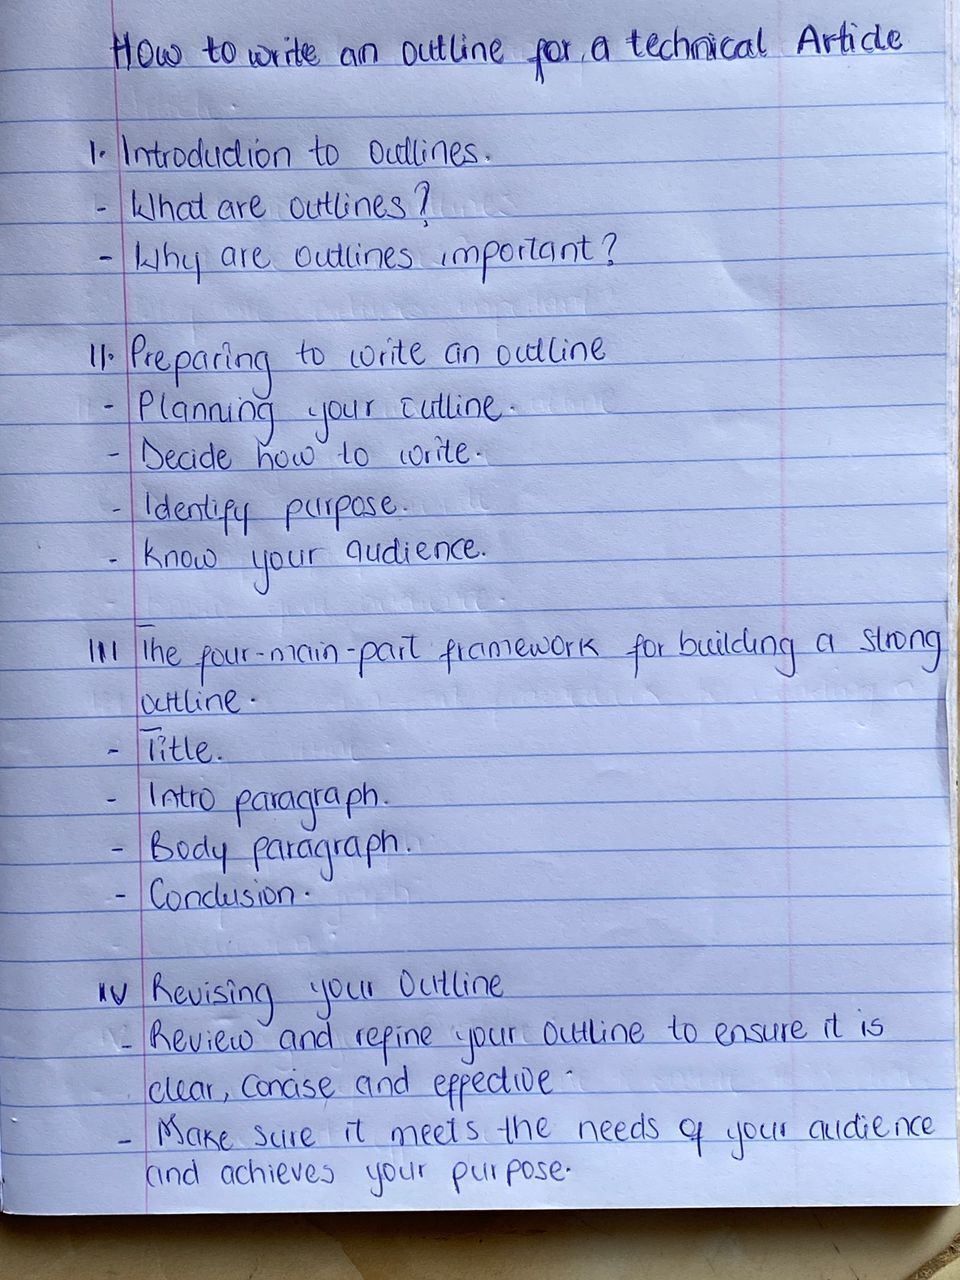 How to write an outline for a technical Article
I. Introduction to outlines.
- What are outlines?
- Why are outlines important?
II. Preparing to write an outline
- Planning your outline.
- Decide how to write.
- Identify purpose.
- Know your audience.
III The four-main-part framework for building a strong
outline.
- Title.
- Intro paragraph.
- Body paragraph.
- Conclusion.
IV Revising your Outline
- Review and refine your outline to ensure it is
clear, Concise and effective.
- Make sure it meets the needs of your audience
and achieves your purpose.